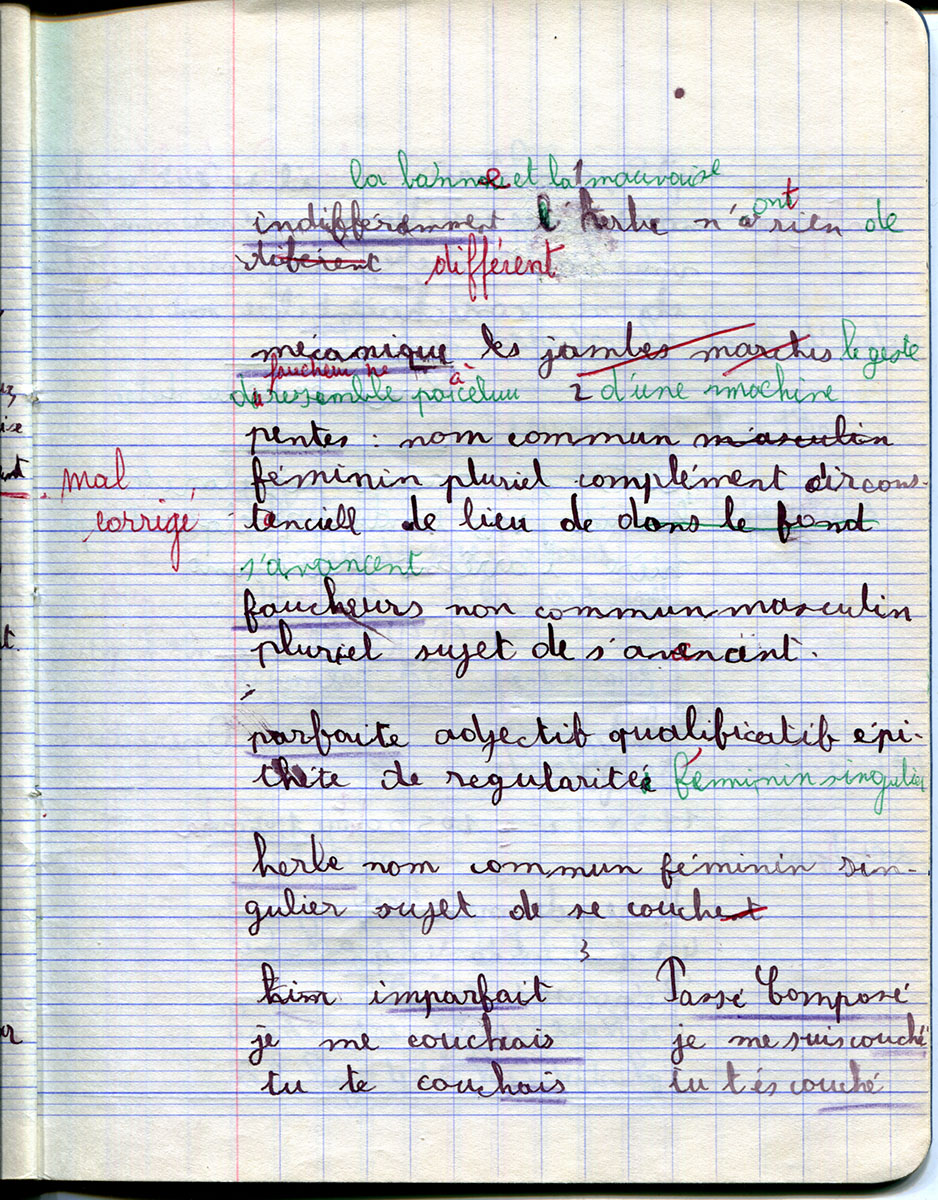 la bonne et la mauvaise
1
ont
indifféremment l'herbe n'a rien de
diférent différent
mécanique les jambes marches le geste
faucheur ne à
du resemble par celuu d'une machine
2
pentes : nom commun masculin
mal féminin pluriel complément circons-
corrigé tanciell de lieu de dans le fond
s'avancent
faucheurs non commun masculin
pluriel sujet de s'avancent.
parfaite adjectif qualificatif épi-
thète de regularité féminin singulier
herbe nom commun féminin sin-
gulier sujet de se couchent
3
imparfait Passé Composé
je me couchais je me suis couché
tu te couchais tu t'és couché